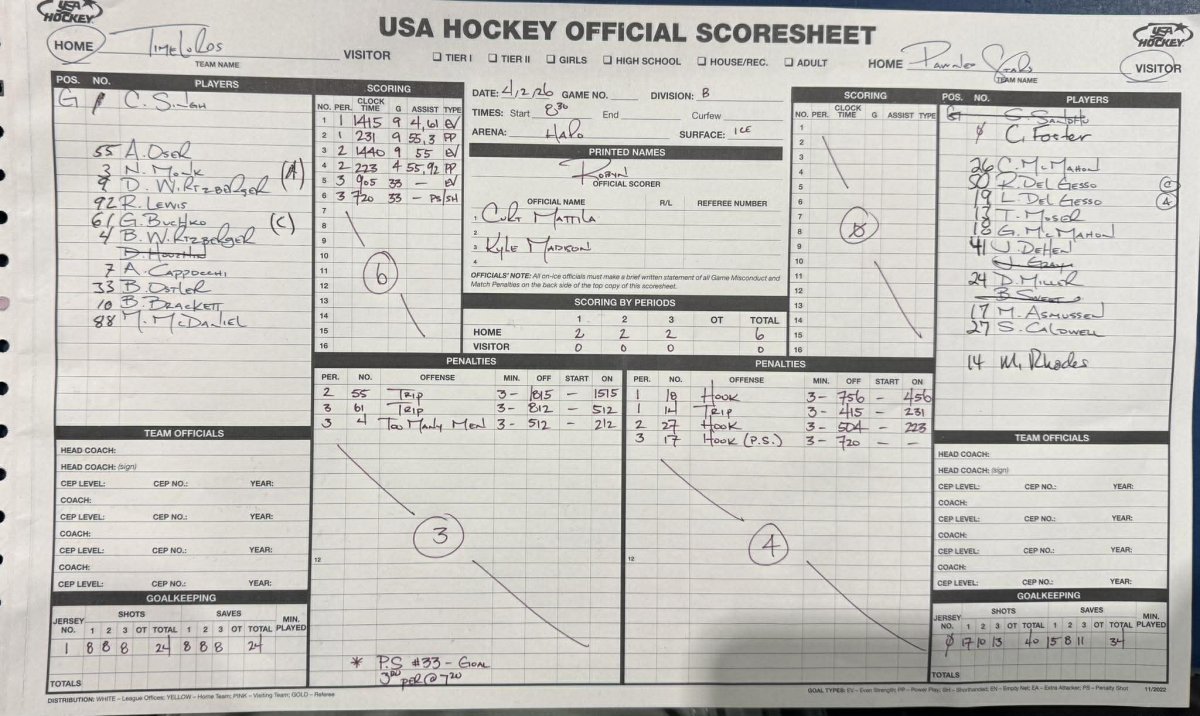 USA HOCKEY
USA HOCKEY OFFICIAL SCORESHEET
USA HOCKEY
HOME TIMELORDS VISITOR
TEAM NAME
☐ TIER I ☐ TIER II ☐ GIRLS ☐ HIGH SCHOOL ☐ HOUSE/REC. ☐ ADULT
HOME PAWNEE STARS VISITOR
TEAM NAME
POS. NO. PLAYERS
G 1 C. SINGH
55 A. OSER
3 N. MONK
9 D. WIRTZBERGER (A)
92 R. LEWIS
61 G. BUCHKO (C)
4 B. WIRTZBERGER
7 A. CAPPOCCHI
33 B. OSTLER
10 B. BRACKETT
88 M. MCDANIEL
SCORING
NO. PER. CLOCK TIME G ASSIST TYPE
1 1 1415 9 4,61 EV
2 1 231 9 55,3 PP
3 2 1440 9 55 EV
4 2 223 4 55,92 PP
5 3 905 33 — EV
6 3 720 33 — PS/SH
7
8
9
10
11
12
13
14
15
16
6
DATE: 4/2/26 GAME NO. DIVISION: B
TIMES: Start 8:30 End Curfew
ARENA: HALO SURFACE: ICE
PRINTED NAMES
ROBYN
OFFICIAL SCORER
OFFICIAL NAME R/L REFEREE NUMBER
1. CURT MATTILA
2
3 KYLE MADISON
4
OFFICIALS' NOTE: All on-ice officials must make a brief written statement of all Game Misconduct and
Match Penalties on the back side of the top copy of this scoresheet.
SCORING BY PERIODS
1 2 3 OT TOTAL
HOME 2 2 2 6
VISITOR 0 0 0 0
SCORING
NO. PER. CLOCK TIME G ASSIST TYPE
1
2
3
4
5
6
7
8
9
10
11
12
13
14
15
16
POS. NO. PLAYERS
G S. SANDHU
Ø C. Foster
26 C. MCMAHON
80 R. DEL GESSO C
19 L. DEL GESSO A
13 T. MOSER
18 G. MCMAHON
41 J. DEHEN
J. GRAY
24 D. MILLER
B. SWEET
17 M. ASMUSSEN
27 S. CALDWELL
14 M. Rhodes
PENALTIES
PER. NO. OFFENSE MIN. OFF START ON
2 55 TRIP 3- 1815 - 1515
3 61 TRIP 3- 812 - 512
3 4 TOO MANY MEN 3- 512 - 212
3
12
PENALTIES
PER. NO. OFFENSE MIN. OFF START ON
1 18 HOOK 3- 756 - 456
1 14 TRIP 3- 415 - 231
2 27 HOOK 3- 504 - 223
3 17 HOOK (P.S.) 3- 720 - -
4
12
TEAM OFFICIALS
HEAD COACH:
HEAD COACH: (sign)
CEP LEVEL: CEP NO.: YEAR:
COACH:
CEP LEVEL: CEP NO.: YEAR:
COACH:
CEP LEVEL: CEP NO.: YEAR:
COACH:
CEP LEVEL: CEP NO.: YEAR:
GOALKEEPING
JERSEY NO. SHOTS 1 2 3 OT TOTAL SAVES 1 2 3 OT TOTAL MIN. PLAYED
1 8 8 8 24 8 8 8 24
TOTALS
* P.S #33 - GOAL
3RD PER @ 720
TEAM OFFICIALS
HEAD COACH:
HEAD COACH: (sign)
CEP LEVEL: CEP NO.: YEAR:
COACH:
CEP LEVEL: CEP NO.: YEAR:
COACH:
CEP LEVEL: CEP NO.: YEAR:
COACH:
CEP LEVEL: CEP NO.: YEAR:
GOALKEEPING
JERSEY NO. SHOTS 1 2 3 OT TOTAL SAVES 1 2 3 OT TOTAL MIN. PLAYED
Ø 17 10 13 40 15 8 11 34
TOTALS
DISTRIBUTION: WHITE – League Offices; YELLOW – Home Team; PINK – Visiting Team; GOLD – Referee
GOAL TYPES: EV – Even Strength; PP – Power Play; SH – Shorthanded; EN – Empty Net; EA – Extra Attacker; PS – Penalty Shot 11/2022